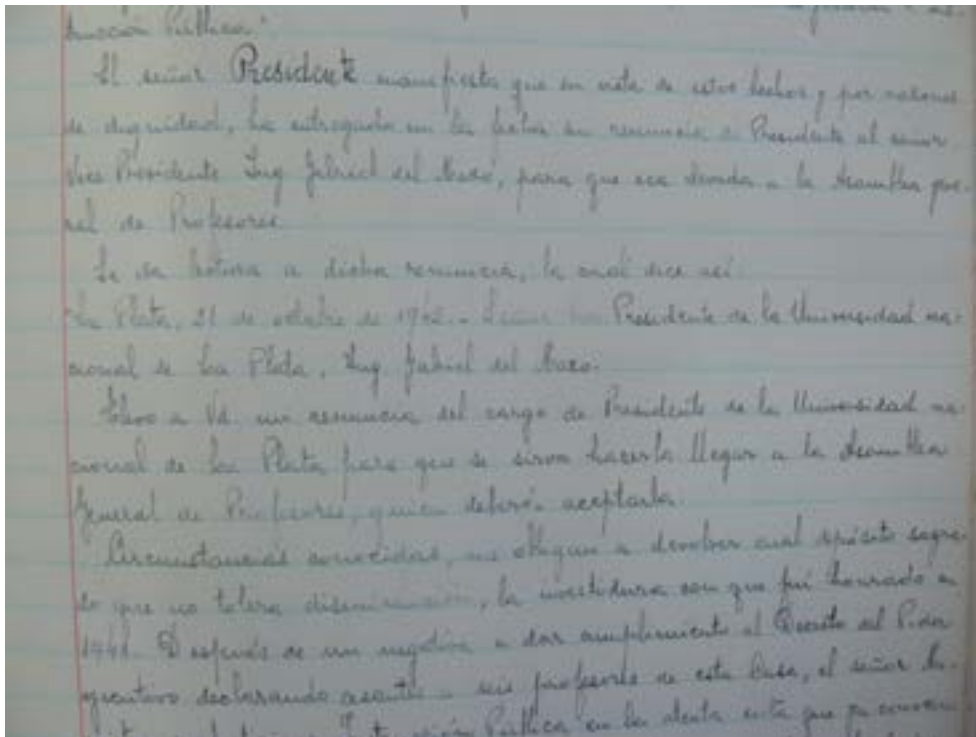 trucción Pública."
El señor Presidente manifiesta que en vista de estos hechos y por razones
de dignidad, ha entregado en la fecha su renuncia de Presidente al señor
Vice Presidente Ing Gabriel del Mazo, para que sea elevada a la Asamblea gene-
ral de Profesores.
Se da lectura a dicha renuncia, la cual dice así:
"La Plata, 21 de octubre de 194 .- Señor Presidente de la Universidad na-
cional de La Plata, Ing. Gabriel del Mazo.
Elevo a Vd. mi renuncia del cargo de Presidente de la Universidad na-
cional de La Plata para que se sirva hacerla llegar a la Asamblea
General de Profesores, quien deberá aceptarla.
Circunstancias conocidas, me obligan a devolver cual depósito sagra-
do que no tolera disminución, la investidura con que fuí honrado en
1941. Después de mi negativa a dar cumplimiento al Decreto del Poder
Ejecutivo declarando cesantes a seis profesores de esta Casa, el señor
Pública en la que